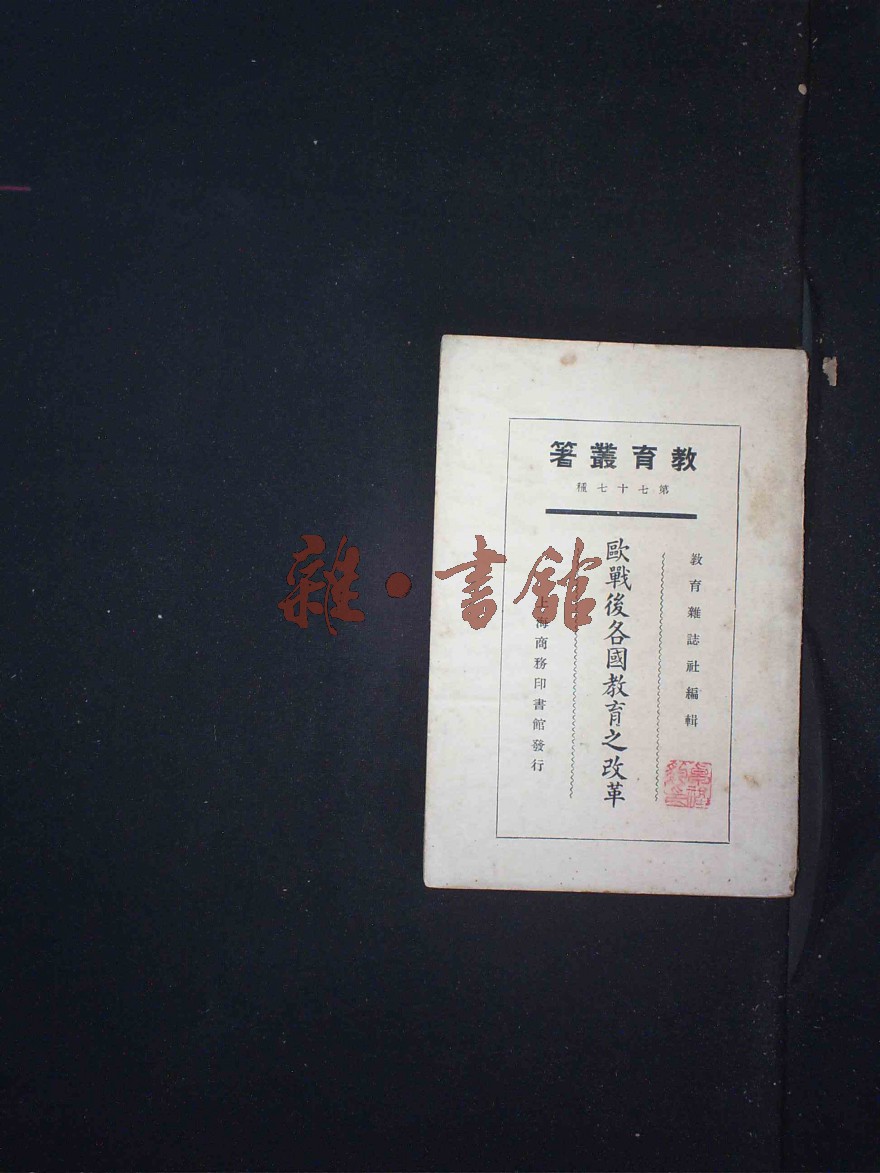 教育叢著
第七十七種
教育雜誌社編輯
歐戰後各國教育之改革
上海商務印書館發行
雜·書館